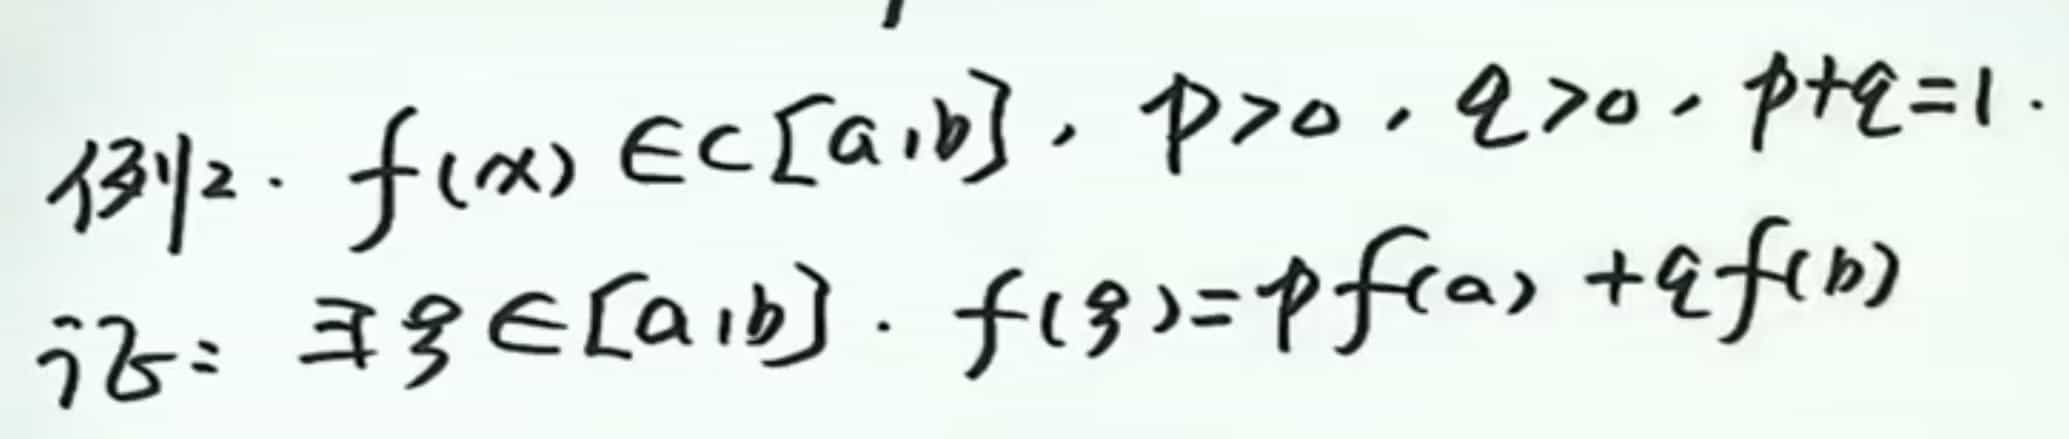 例2. f(x)∈C[a,b], p>0, q>0, p+q=1.
证: ∃ξ∈[a,b]. f(ξ)=pf(a)+qf(b)